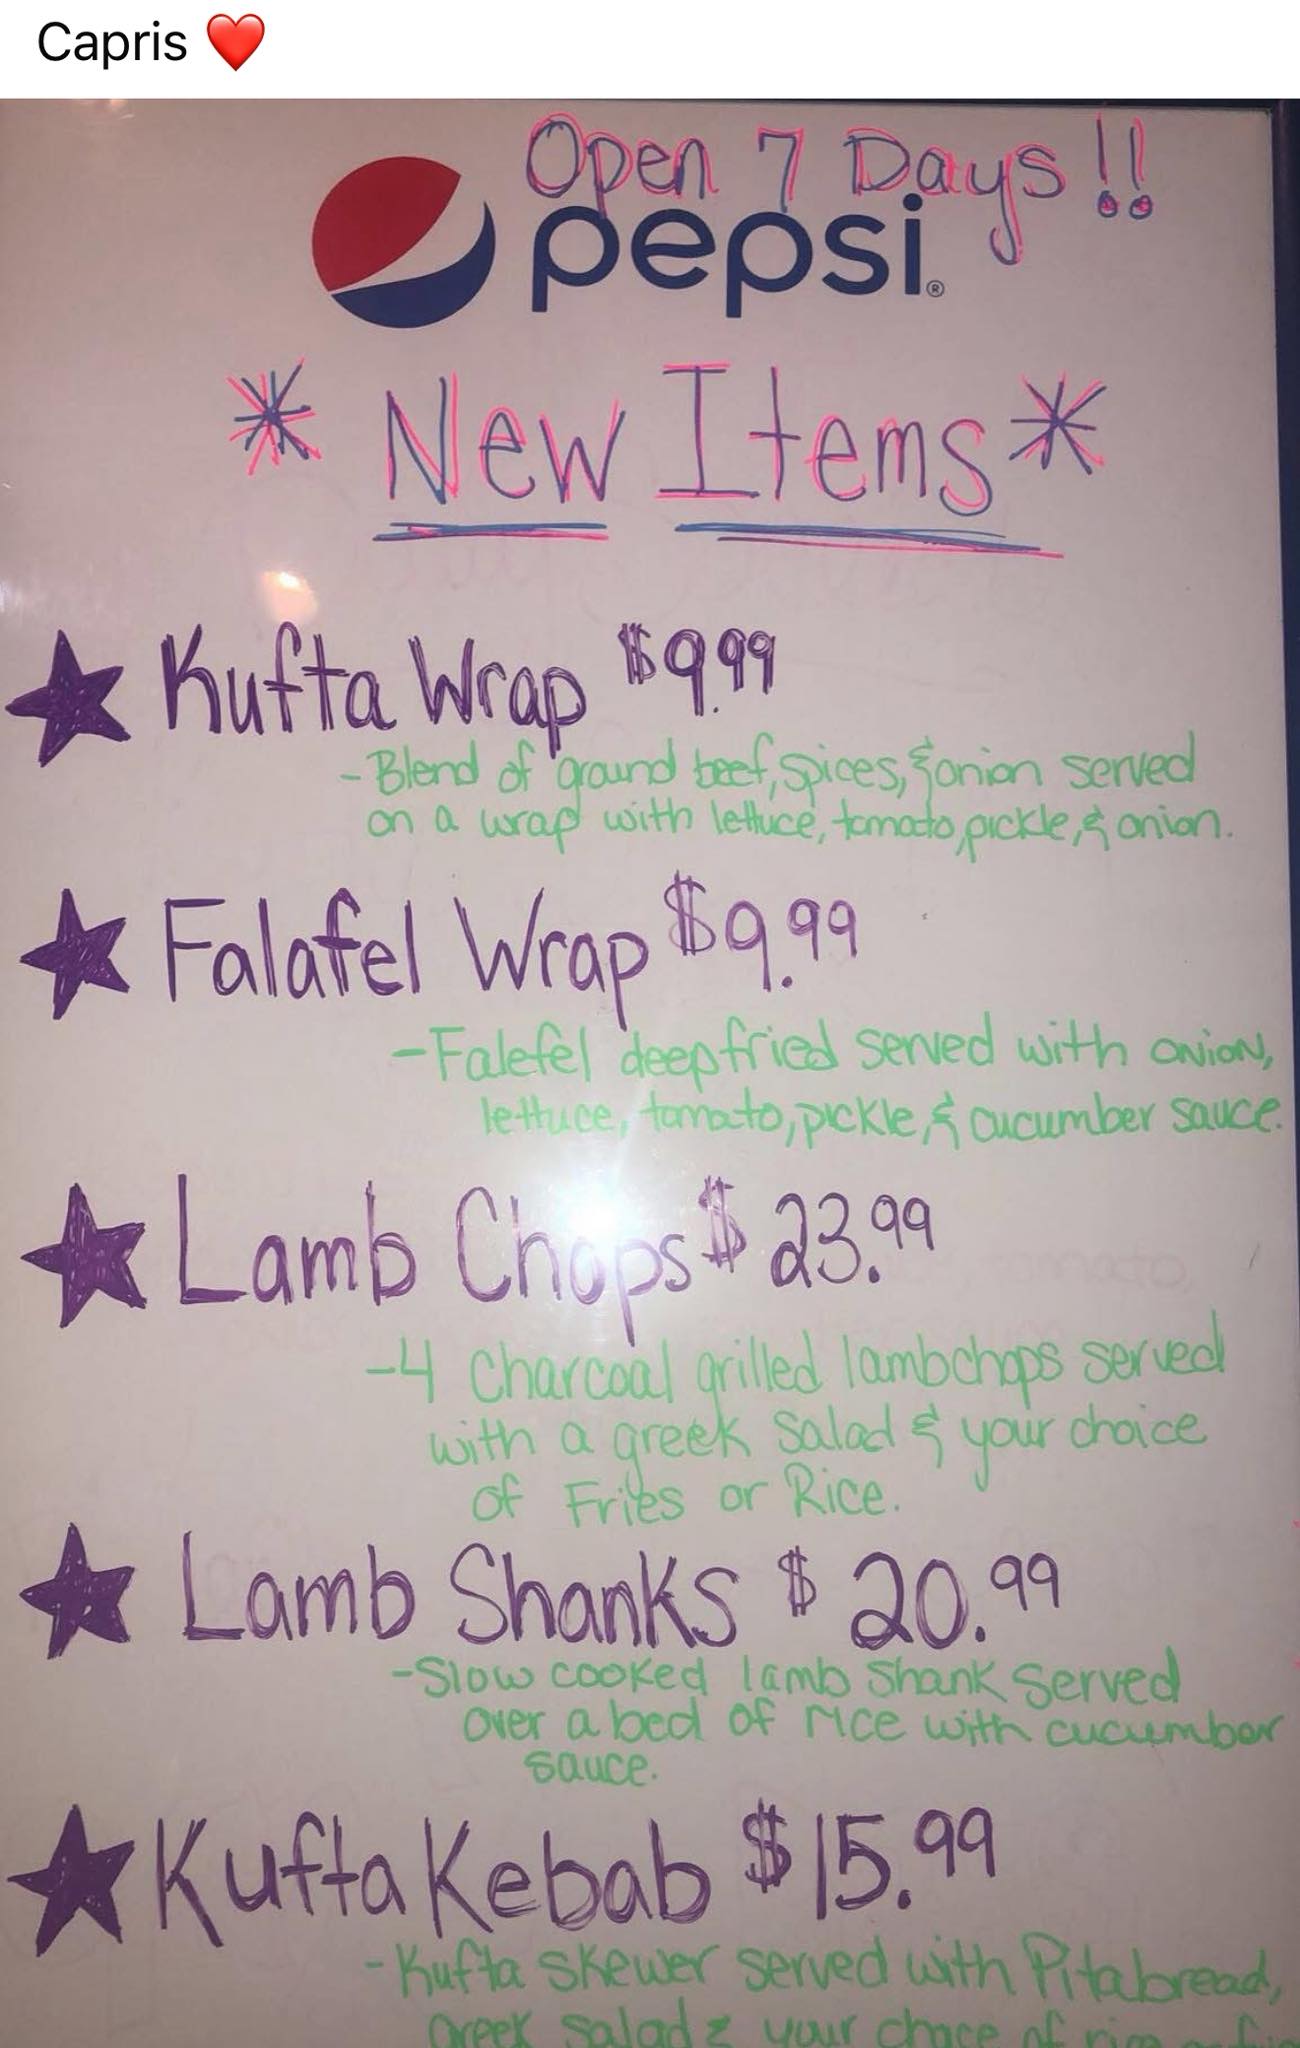 Capris ❤️
Open 7 Days!!
pepsi®
* New Items *
★ Kufta Wrap $9.99
- Blend of ground beef, spices, & onion served
on a wrap with lettuce, tomato, pickle, & onion.
★ Falafel Wrap $9.99
- Falefel deepfried served with onion,
lettuce, tomato, pickle, & cucumber sauce.
★ Lamb Chops $23.99
- 4 Charcoal grilled lambchops served
with a greek salad & your choice
of Fries or Rice.
★ Lamb Shanks $20.99
- Slow cooked lamb shank served
over a bed of rice with cucumber
sauce.
★ Kufta Kebab $15.99
- Kufta skewer served with Pitabread,
Greek salad & your choce of rice